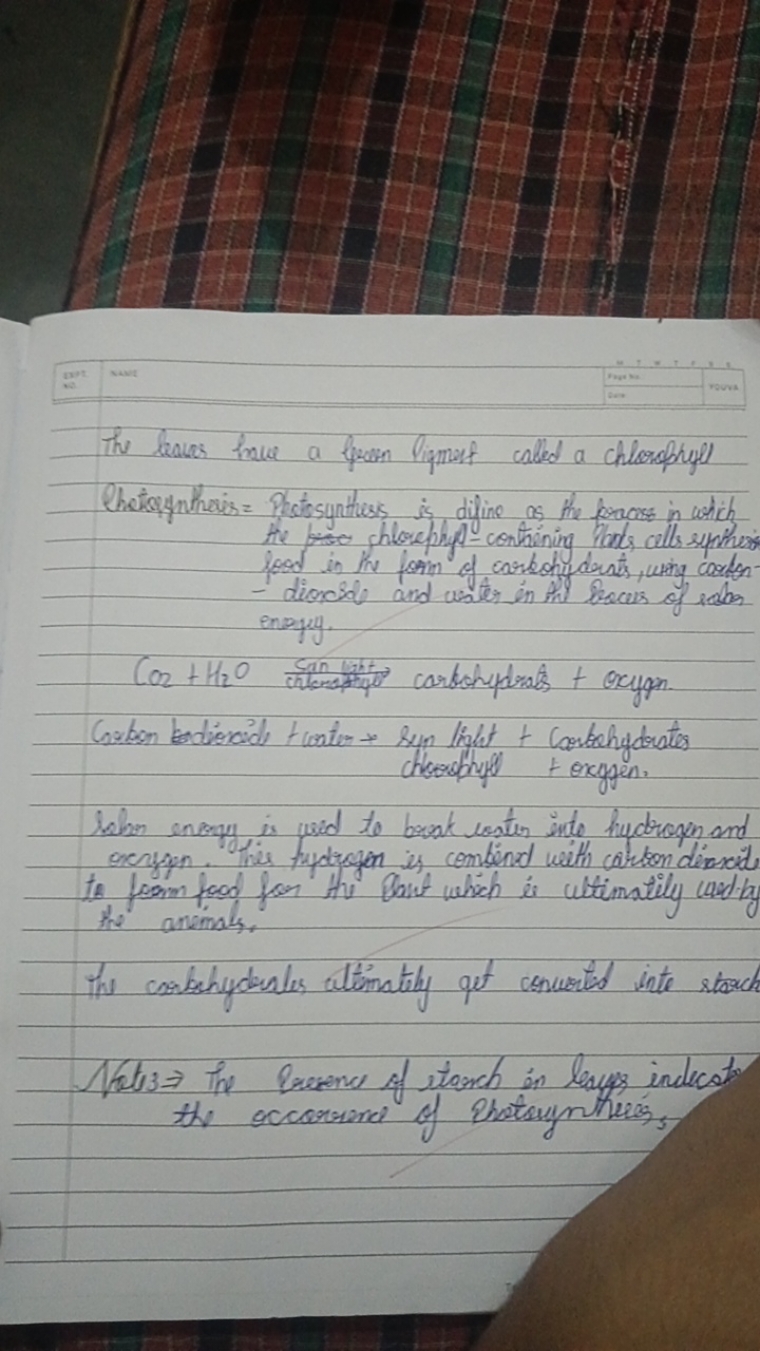 EXPT. NO.
NAME
M T W T F S S
Page No.
Date
YOUVA
The leaves have a Green Pigment called a chlorophyll
Photosynthesis = Photosynthesis is difine as the process in which
the chlorophyll - contining Plants cells synthesis
food in the form of carbohydrats, using carbon-
- dioxide and water in the of solar
energy.
Co2 + H2O Sun light chlorophyll → carbohydrats + oxygen.
Carbon dioxide + water → Sun light + Carbohydrates
chlorophyll + oxygen.
Solar energy is used to break water into hydrogen and
oxcygen. This hydrogen is combined with carbon dioxide
to form food for the Plant which is ultimatily used by
the animals.
The carbohydrates ultimately get converted into starch
Notes ⇒ The Presence of starch in leaves indicate
the occorrence of Photosynthesis.